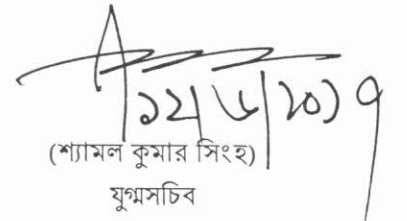 ১২/৬/২০১৭
(শ্যামল কুমার সিংহ)
যুগ্মসচিব